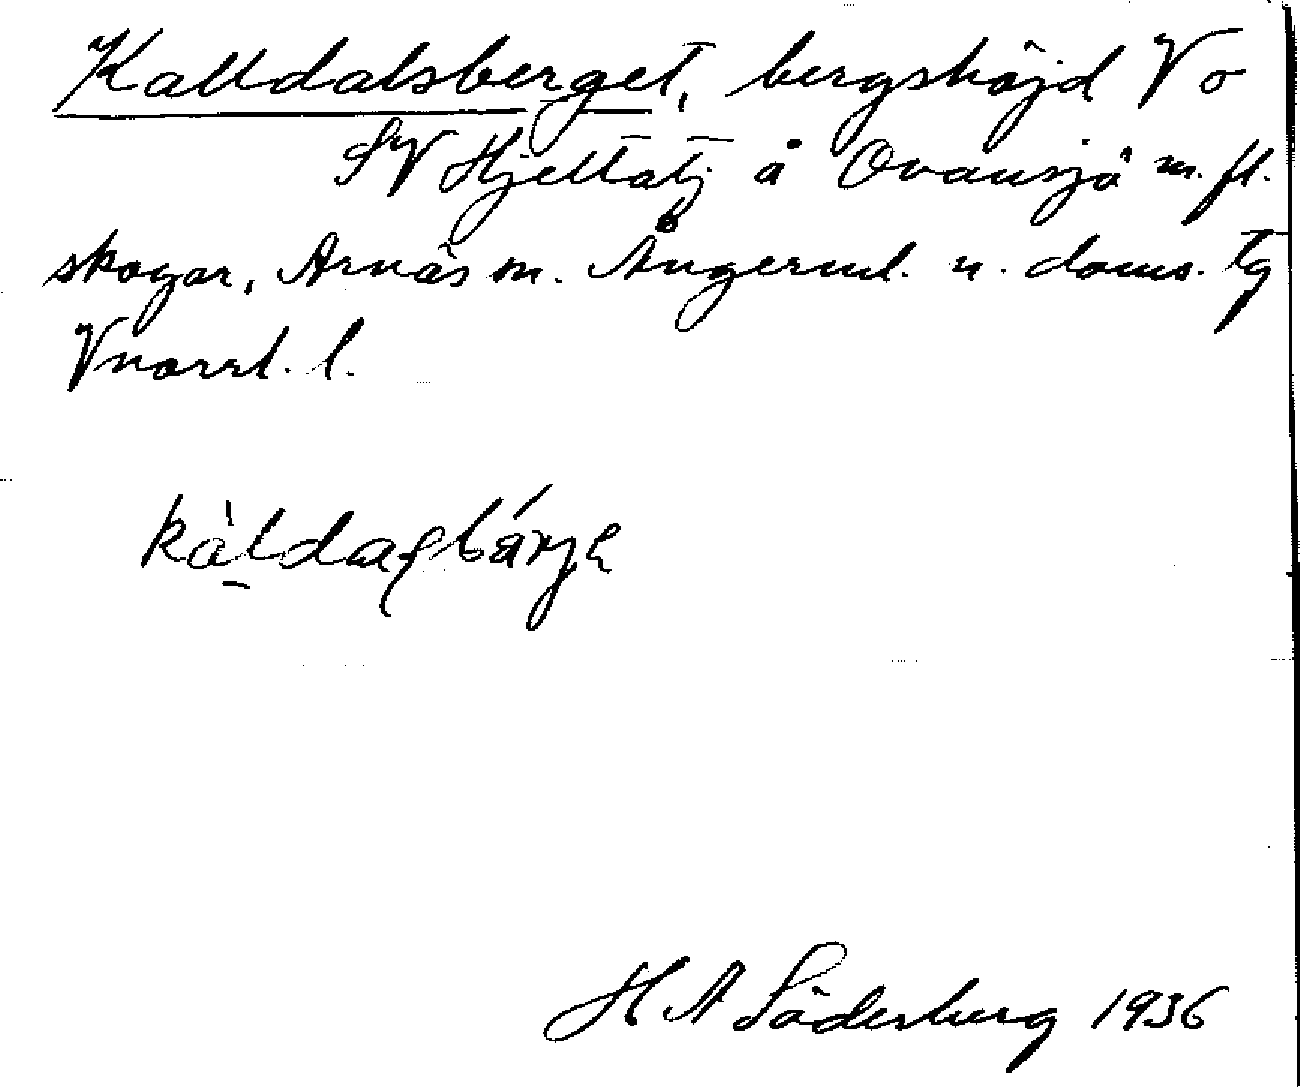 Kalldalsberget, bergshöjd V o
SV Hjelltatj å Ovansjö m. fl.
skogar, Arnäs sn. Ångerml. n. doms. tg
Vnorrl. l.
H A Söderberg 1936